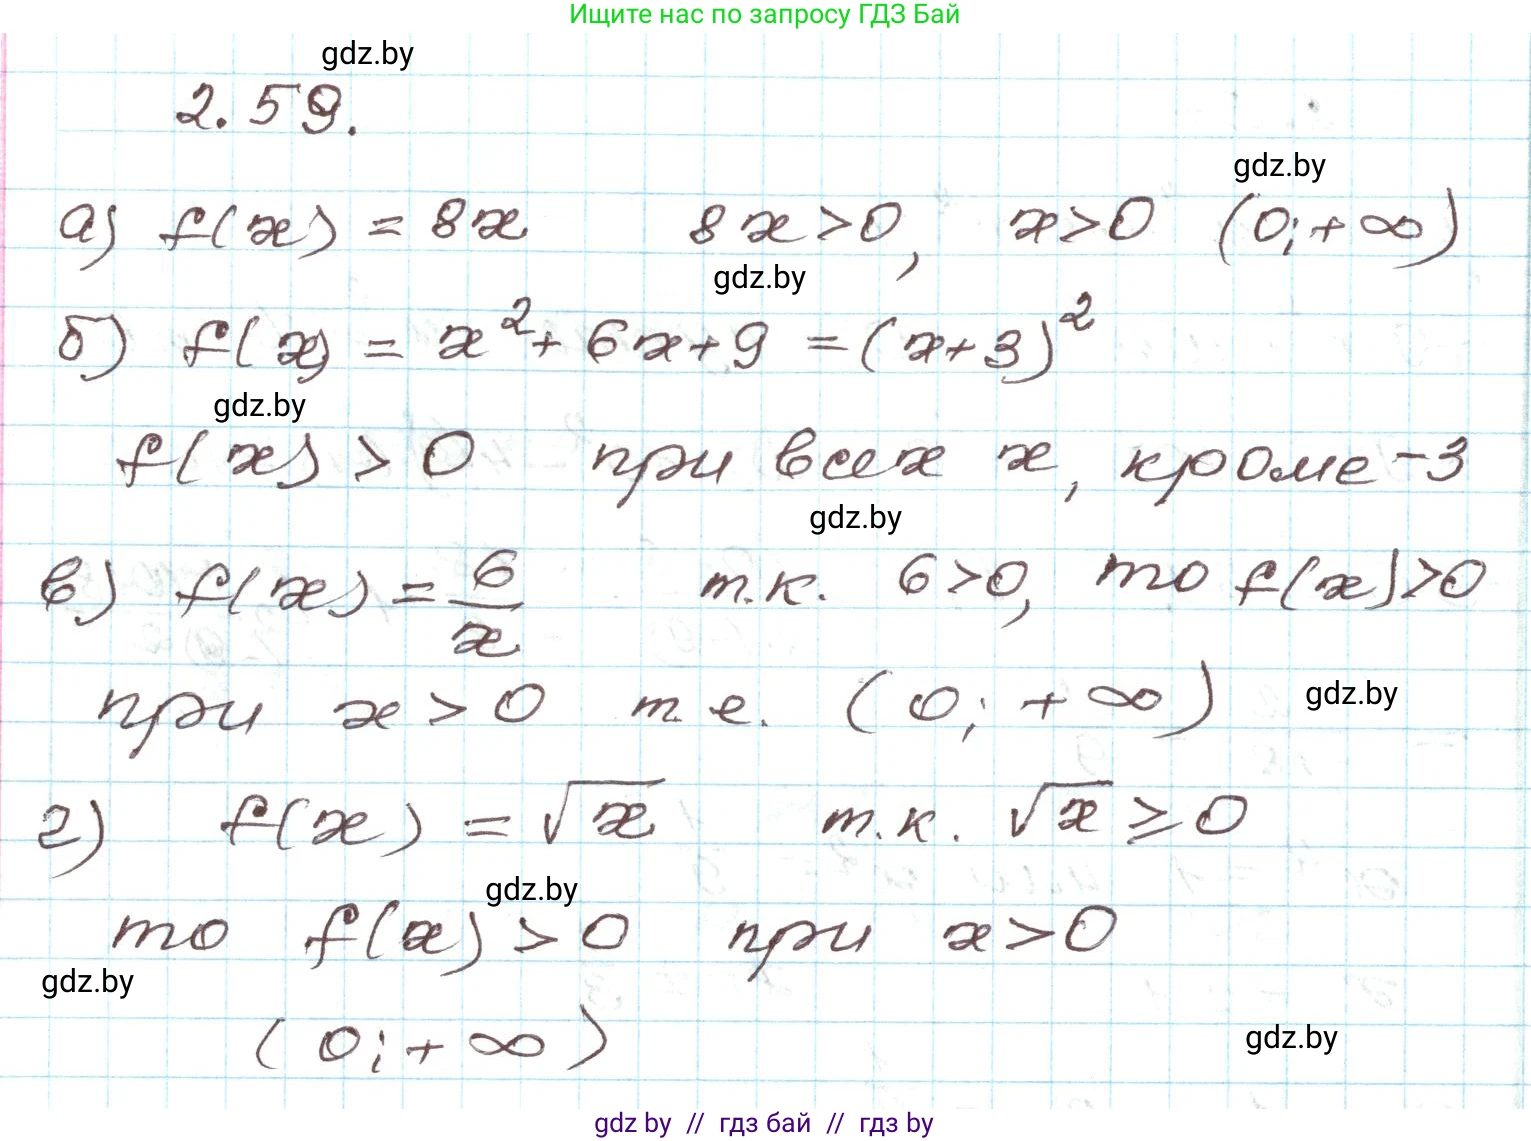 Ищите нас по запросу ГДЗ Бай
gdz.by
2.59.
gdz.by
а) f(x) = 8x 8x>0, x>0 (0;+∞)
gdz.by
б) f(x) = x²+6x+9 =(x+3)²
gdz.by
f(x) > 0 при всех x, кроме -3
gdz.by
в) f(x) = 6/x т.к. 6>0, то f(x)>0
при x > 0 т.е. (0; +∞)
gdz.by
г) f(x) = √x т.к. √x ≥ 0
gdz.by
то f(x) > 0 при x>0
gdz.by
(0;+∞)
gdz.by
gdz by // гдз бай // гдз by